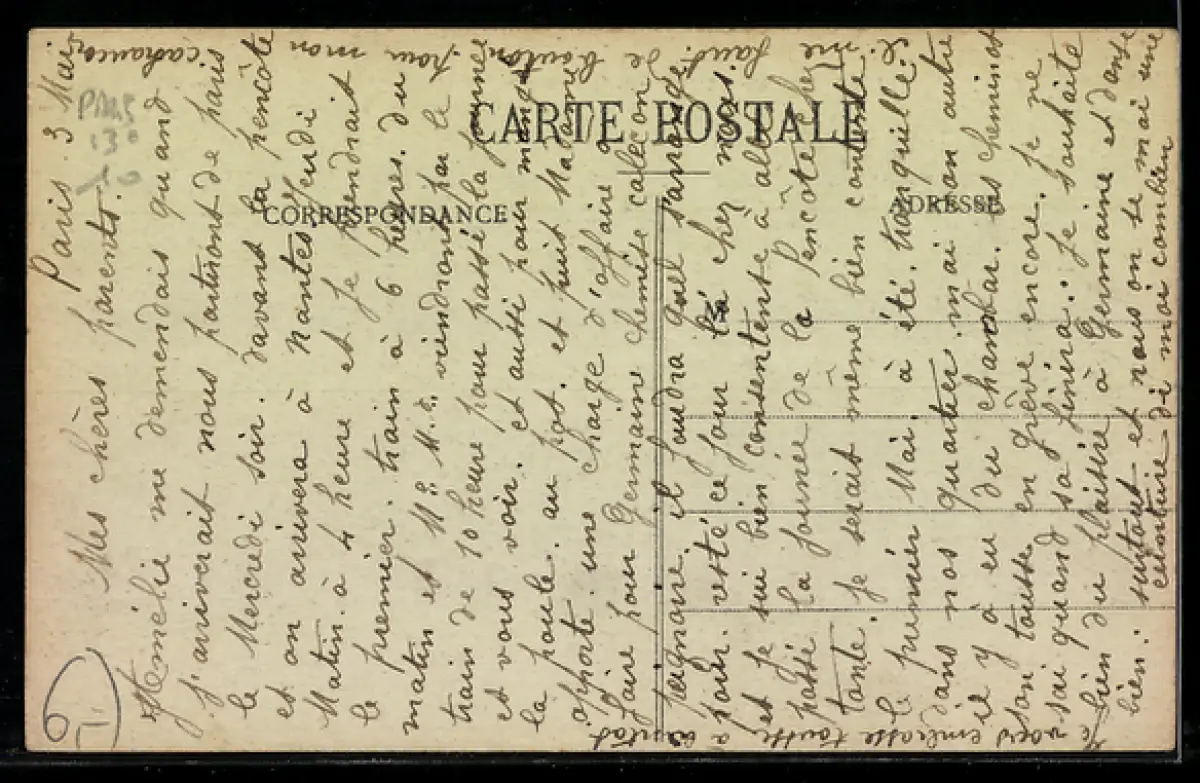 CARTE POSTALE
CORRESPONDANCE
ADRESSE
Paris. 3 Mai.
Mes chères parents.
Amélie me demendais quand
j'ariverait nous partiront de paris
le Mercredi soir. davant la pencôte
et on arivera à Nantes Jeudi
Matin à 4 heure et je prendrait
le premier. train à 6 heures. du
matin et Mr Me viendront par le
train de 10 heure pour passé la journée
et vous voir. et aussi pour mangé
la poule. au pot. et puit Madame
apporte une charge d'affaire à
faire pour Germaine chemise caleçon
peignoire il foudra quel s'arange
pour resté ce jour là chez nous.
et je sui bien contentente à allé
passé la journée de la pencôte chez ma
tante. je serait même bien contente
le premier Mai. à été. tranquille.
dans nos quartier. mai on autre
il y à eu du chambar. les cheminot
son tousse en grève encore. je ne
sai quand sa finira. je souhaite
bien du plaisire à Germaine et danse
bien. surtout et nous on se
ceinture di moi combien
faut. de bouton pour mon
Je vous embrasse tousse